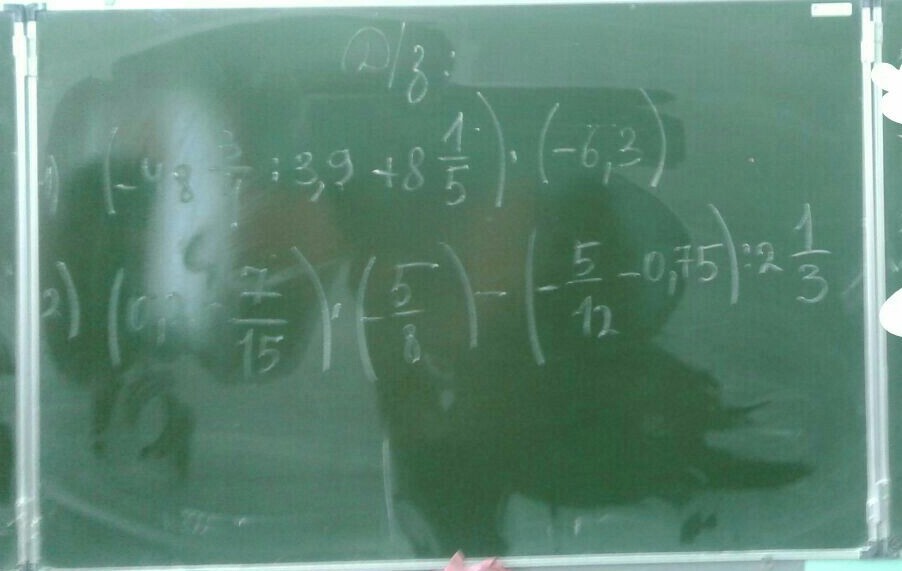 Д/з:
1) (-48 3/ : 3,9 + 8 1/5) · (-6,3)
2) ( 7/15) · (-5/8) - (-5/12 - 0,75) : 2 1/3